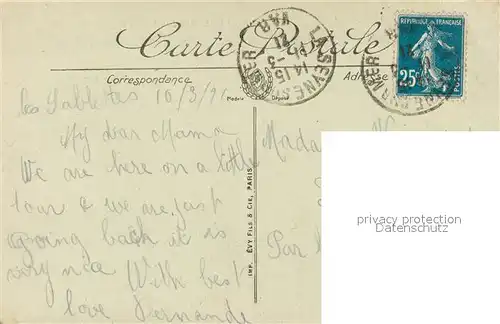 Carte Postale
Correspondance
Adresse
Modèle Déposé
LA SEYNE SUR MER VAR
14 15
RÉPUBLIQUE FRANÇAISE
25c
POSTES
les Sablettes 10/3/21
My dear Mama
We are here on a little
tour & we are just
going back it is
very nice With best
love Fernande
Madame
Par
IMP. ÉVY FILS & CIE, PARIS
privacy protection
Datenschutz